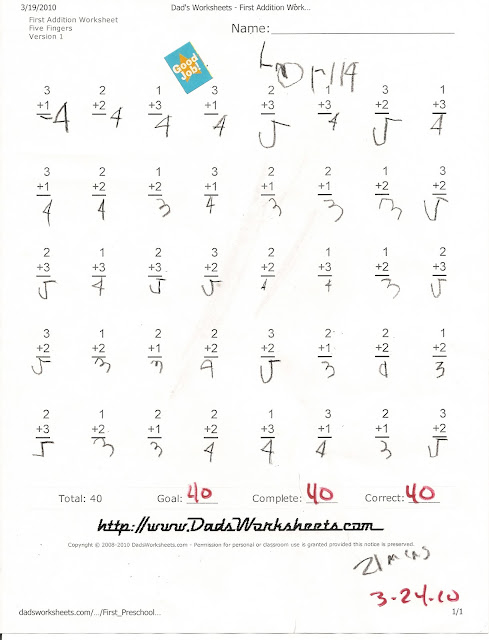 3/19/2010 Dad's Worksheets - First Addition Work...
First Addition Worksheet
Five Fingers
Version 1
Name:
Good
Job!
3 2 1 3 2 1 3 1
+1 +2 +3 +1 +3 +3 +2 +3
=4 4 4 4 5 4 5 4
3 2 1 3 2 2 1 3
+1 +2 +2 +1 +1 +1 +2 +2
4 4 3 4 3 3 3 5
2 1 2 3 2 1 1 2
+3 +3 +3 +2 +2 +3 +2 +3
5 4 5 5 4 4 3 5
3 1 2 2 3 2 2 1
+2 +2 +1 +2 +2 +1 +2 +2
5 3 3 4 5 3 4 3
2 1 2 2 1 3 2 3
+3 +2 +1 +2 +3 +1 +1 +2
5 3 3 4 4 4 3 5
Total: 40 Goal: 40 Complete: 40 Correct: 40
http://www.DadsWorksheets.com
Copyright © 2008-2010 DadsWorksheets.com - Permission for personal or classroom use is granted provided this notice is preserved.
21 mins
3-24-10
dadsworksheets.com/.../First_Preschool... 1/1